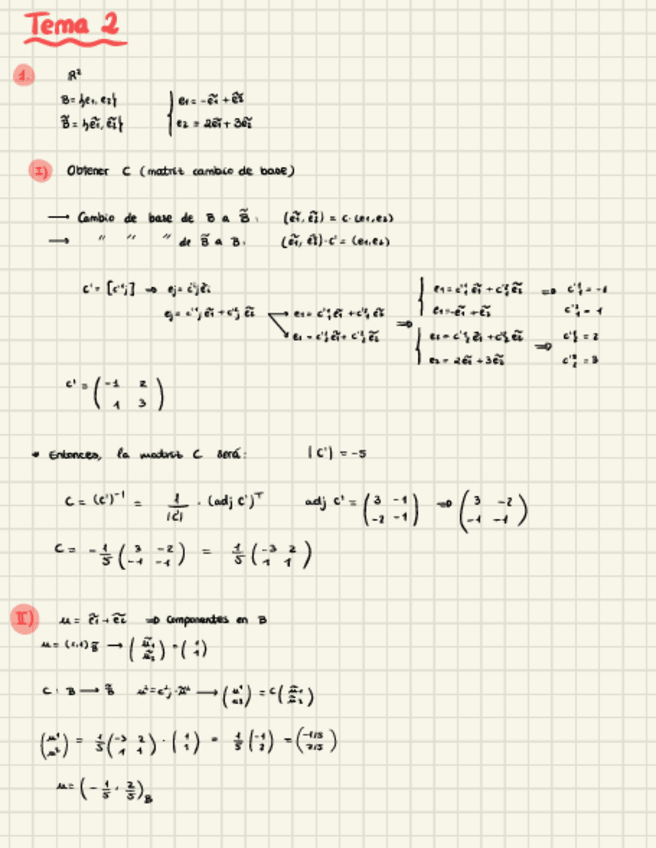 Tema 2
1. R²
B = {e₁, e₂}
B̃ = {ẽ₁, ẽ₂}
e₁ = -ẽ₁ + ẽ₂
e₂ = 2ẽ₁ + 3ẽ₂
I) Obtener C (matriz cambio de base)
→ Cambio de base de B a B̃: (ẽ₁, ẽ₂) = C·(e₁, e₂)
→ " " " de B̃ a B: (ẽ₁, ẽ₂)·C' = (e₁, e₂)
C' = [c'ⁱⱼ] ⇒ eⱼ = c'ⁱⱼ ẽᵢ
eⱼ = c'¹ⱼ ẽ₁ + c'²ⱼ ẽ₂
e₁ = c'¹₁ ẽ₁ + c'²₁ ẽ₂ ⇒ c'¹₁ = -1
e₁ = -ẽ₁ + ẽ₂ c'²₁ = 1
e₂ = c'¹₂ ẽ₁ + c'²₂ ẽ₂ ⇒ c'¹₂ = 2
e₂ = 2ẽ₁ + 3ẽ₂ c'²₂ = 3
C' = (-1 2
1 3)
• Entonces, la matriz C será: |C'| = -5
C = (C')⁻¹ = 1/|C'| · (adj C')ᵀ adj C' = (3 -1 / -2 -1) ⇒ (3 -2 / -1 -1)
C = -1/5 (3 -2 / -1 -1) = 1/5 (-3 2 / 1 1)
II) u = ẽ₁ + ẽ₂ ⇒ Componentes en B
u = (1,1) B̃ → (ũ₁ / ũ₂) = (1 / 1)
C: B → B̃ → (u¹ / u²) = C (ũ₁ / ũ₂)
(u¹ / u²) = 1/5 (-3 2 / 1 1) · (1 / 1) = 1/5 (-1 / 2) = (-1/5 / 2/5)
u = (-1/5, 2/5)B